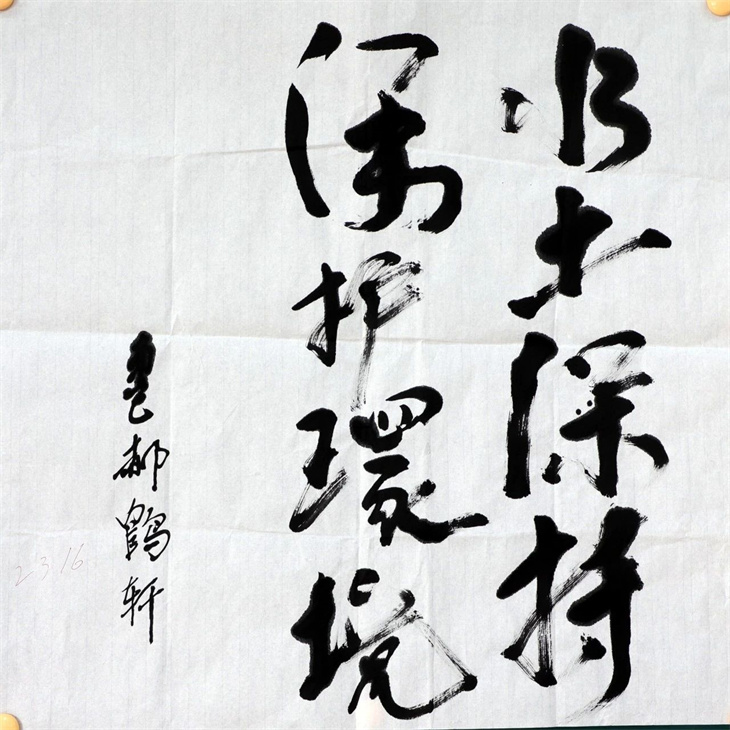 水土保持
保护環境
郝鶴轩
2316